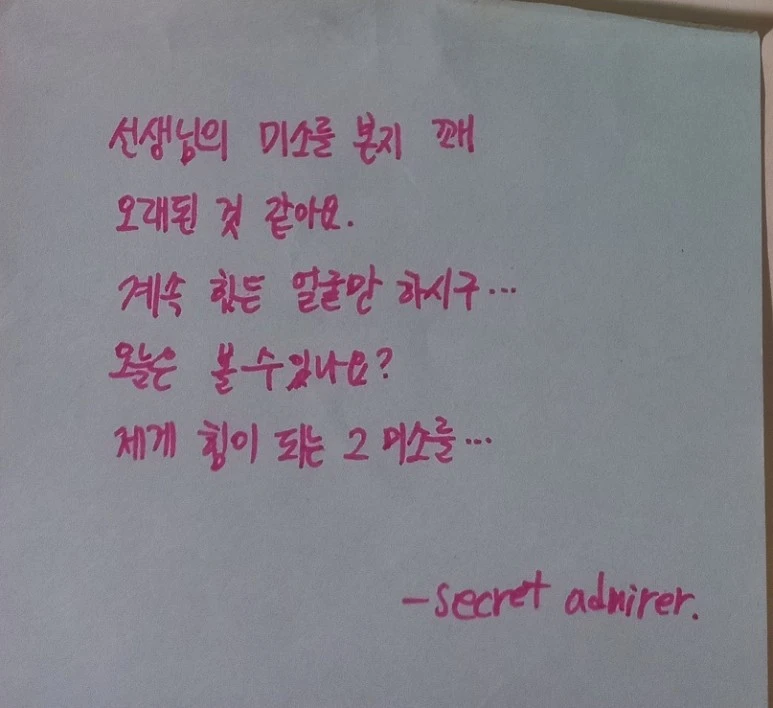 선생님의 미소를 본지 꽤
오래된 것 같아요.
계속 힘든 얼굴만 하시구...
오늘은 볼 수 있나요?
제게 힘이 되는 그 미소를...
-secret admirer.